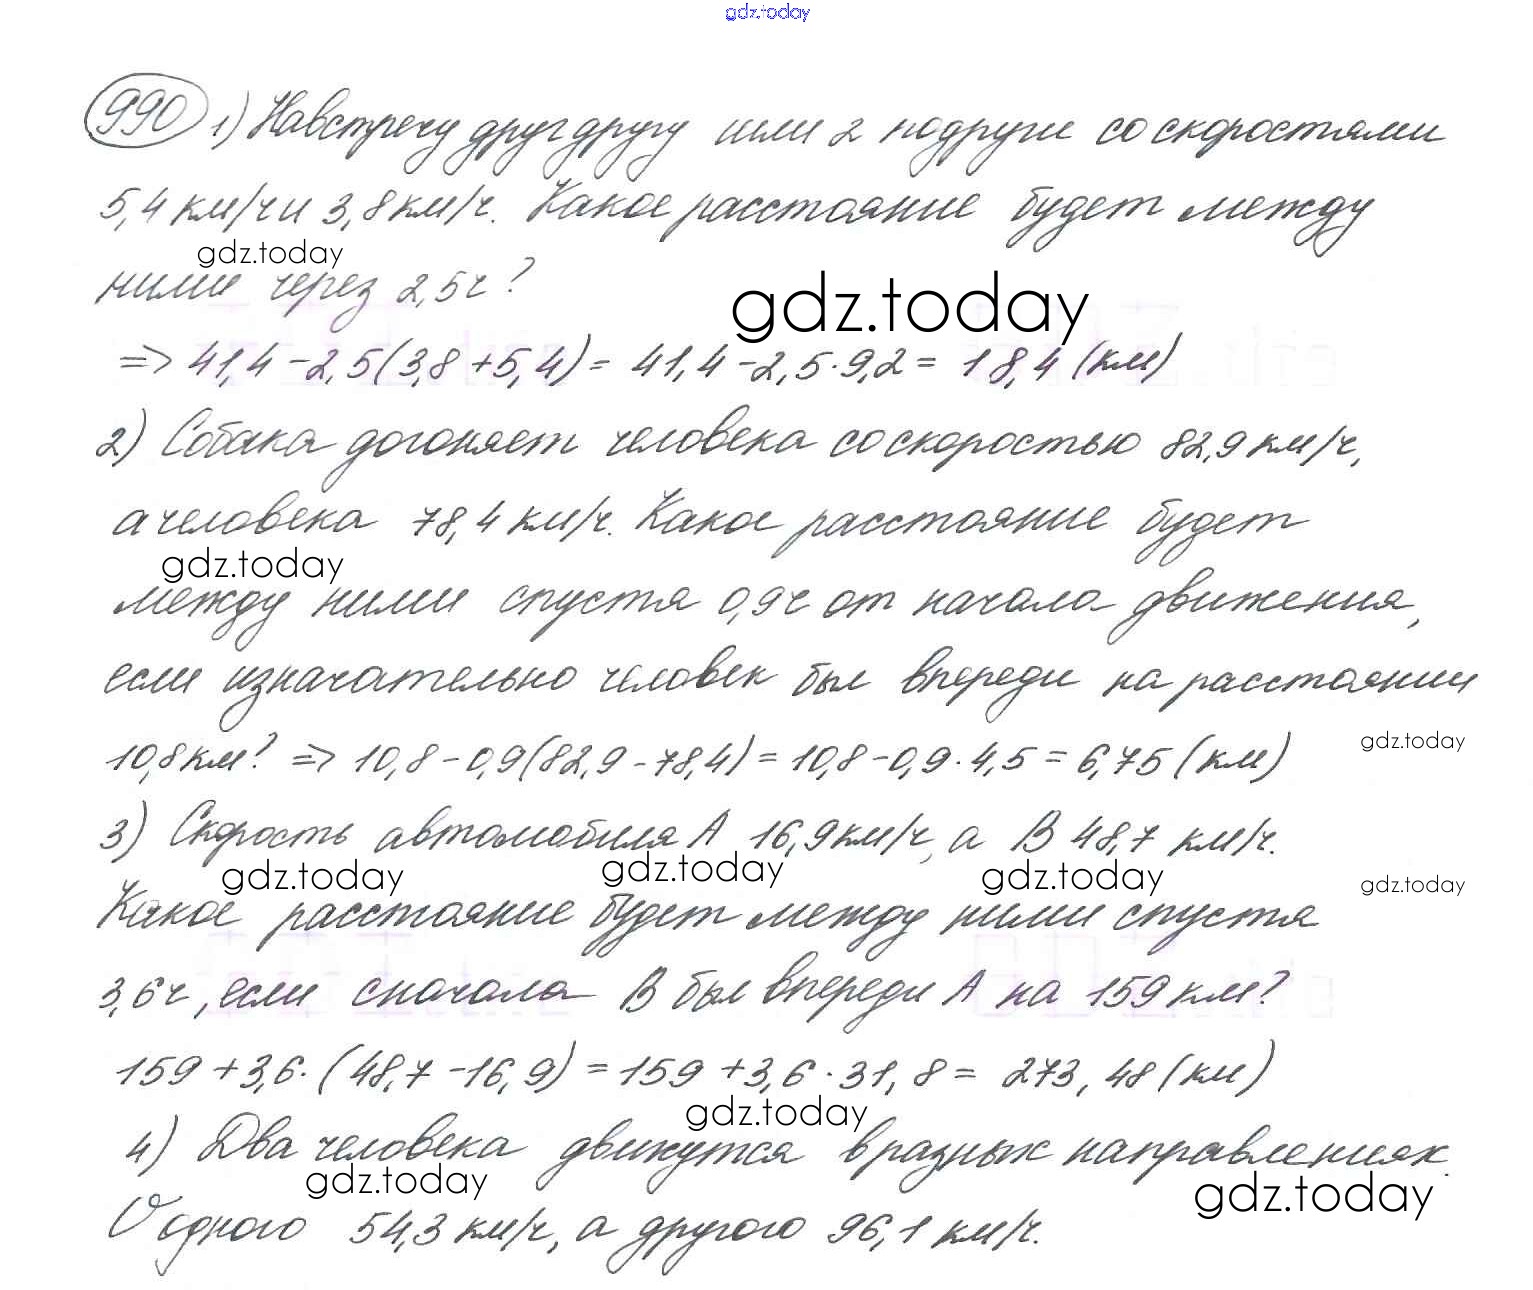 gdz.today
990 1) Навстречу друг другу шли 2 подруги со скоростями
5,4 км/ч и 3,8 км/ч. Какое расстояние будет между
gdz.today
ними через 2,5 ч?
gdz.today
=> 41,4 - 2,5(3,8 + 5,4) = 41,4 - 2,5 · 9,2 = 18,4 (км)
2) Собака догоняет человека со скоростью 82,9 км/ч,
а человека 78,4 км/ч. Какое расстояние будет
gdz.today
между ними спустя 0,9 ч от начала движения,
если изначательно человек был впереди на расстоянии
10,8 км? => 10,8 - 0,9(82,9 - 78,4) = 10,8 - 0,9 · 4,5 = 6,75 (км)
gdz.today
3) Скорость автомобиля А 16,9 км/ч, а В 48,7 км/ч.
gdz.today gdz.today gdz.today gdz.today
Какое расстояние будет между ними спустя
3,6 ч, если сначала В был впереди А на 159 км?
159 + 3,6 · (48,7 - 16,9) = 159 + 3,6 · 31,8 = 273,48 (км)
gdz.today
4) Два человека движутся в разных направлениях.
gdz.today gdz.today
У одного 54,3 км/ч, а другого 96,1 км/ч.